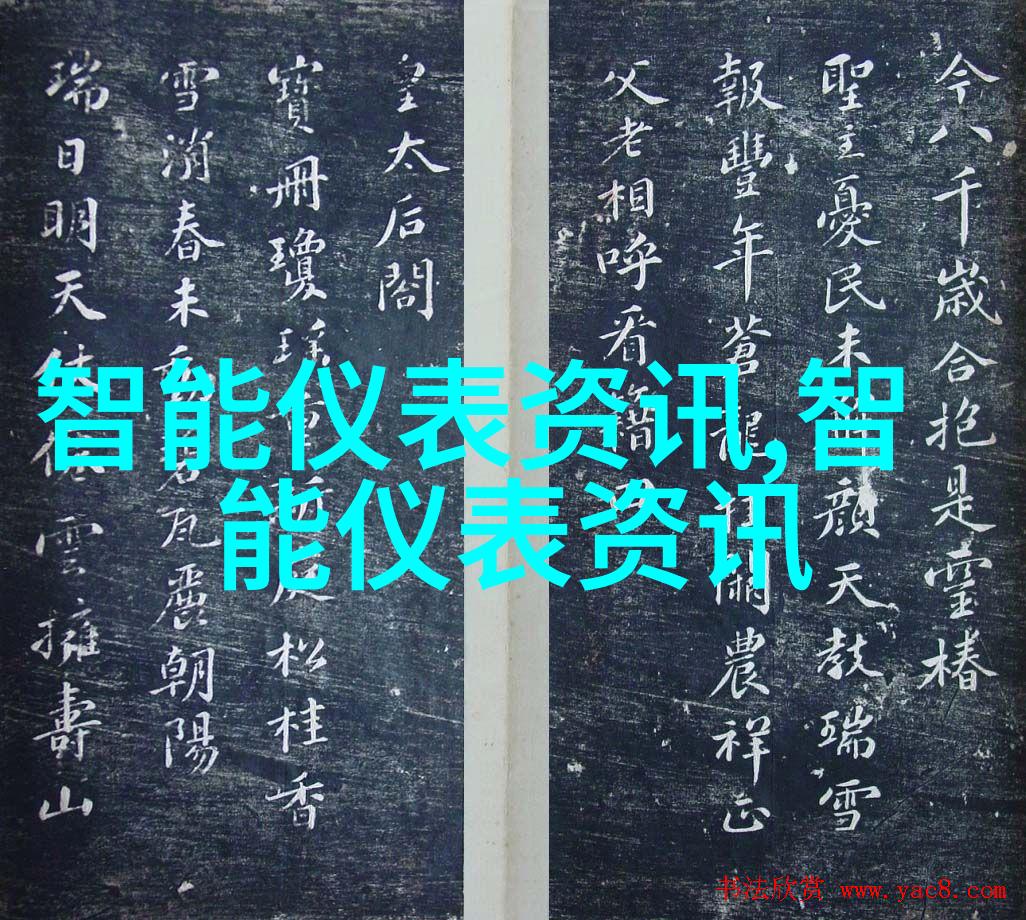 今八千歲合抱是靈椿
聖主憂民未解顏天教瑞雪
報豐年蒼龍關農祥正
父老相呼看
皇太后閤
寶冊瓊瑤重松桂香
雪消春未瓦麗朝陽
瑞日明天雲擁壽山
智能仪表资讯,智
能仪表资讯
书法欣赏 www.yac8.com